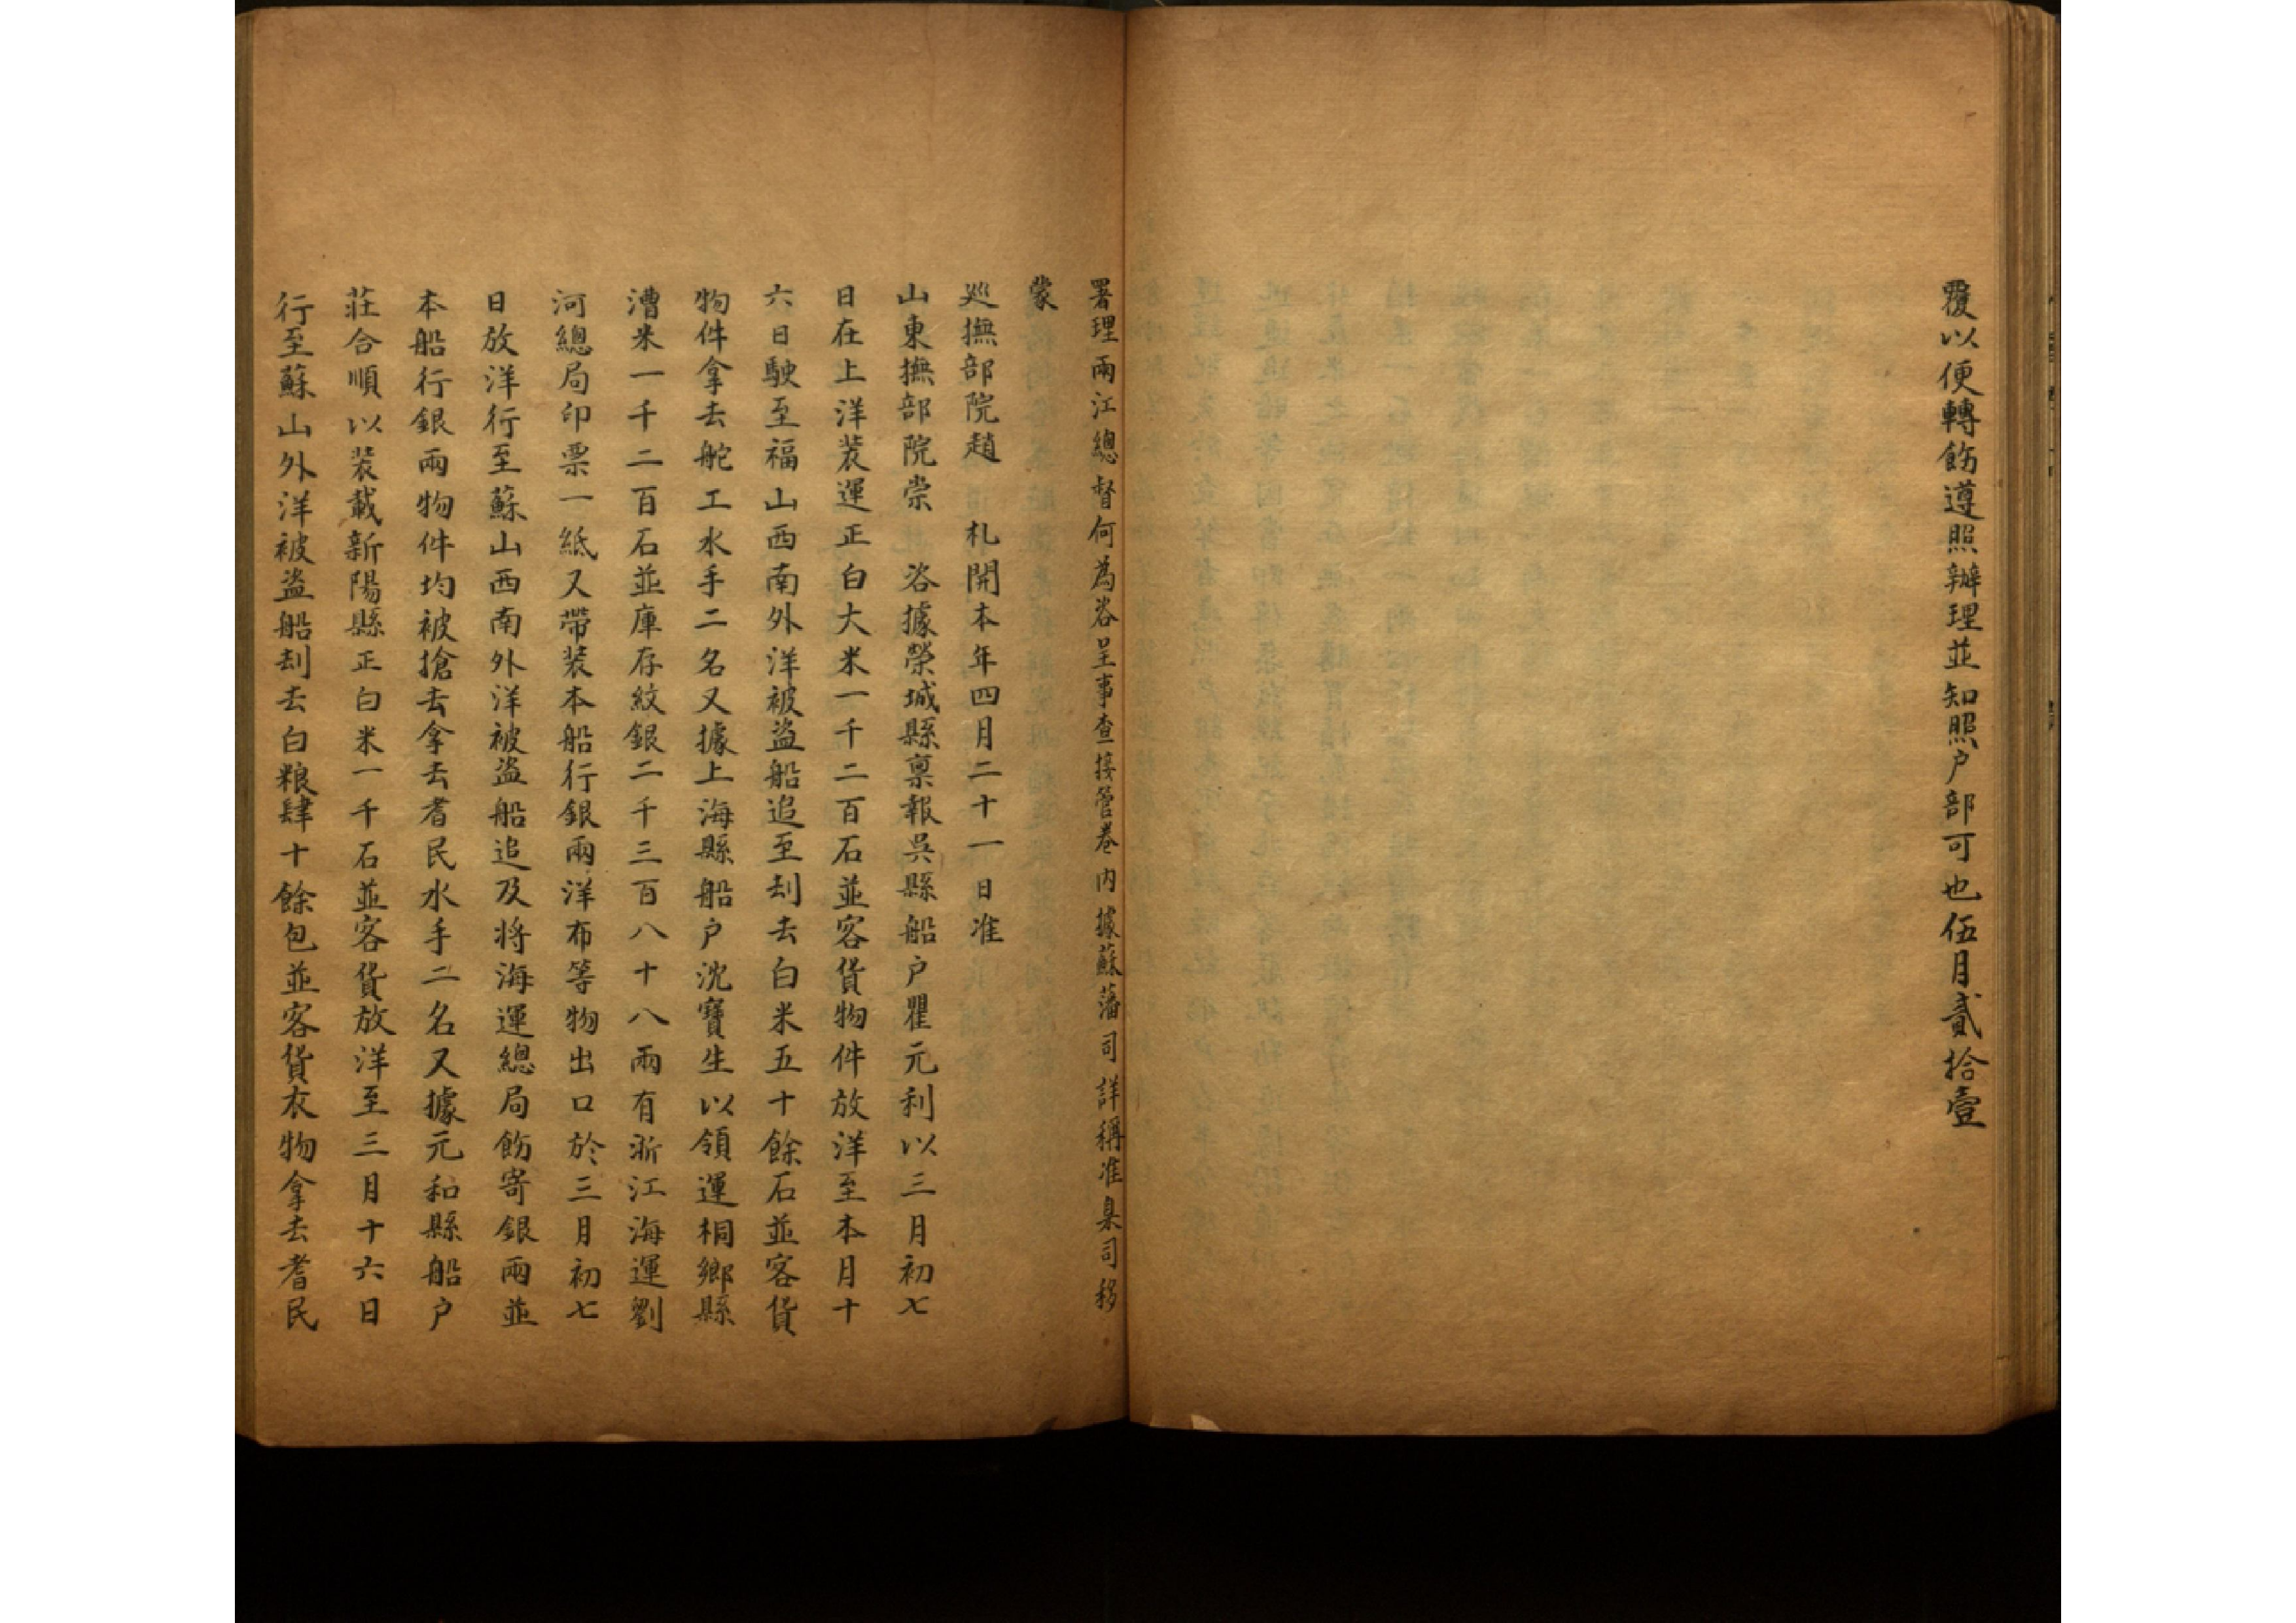 覆以便轉飭遵照辦理並知照户部可也伍月貳拾壹
署理兩江總督何為咨呈事查接管卷内據蘇藩司詳稱准臬司移
蒙
巡撫部院趙　札開本年四月二十一日准
山東撫部院崇　咨據榮城縣稟報吳縣船户瞿元利以三月初七
日在上洋装運正白大米一千二百石並客貨物件放洋至本月十
六日駛至福山西南外洋被盜船追至刦去白米五十餘石並客貨
物件拿去舵工水手二名又據上海縣船户沈寶生以領運桐鄉縣
漕米一千二百石並庫存紋銀二千三百八十八兩有浙江海運劉
河總局印票一紙又帶装本船行銀兩洋布等物出口於三月初七
日放洋行至蘇山西南外洋被盜船追及將海運總局飭寄銀兩並
本船行銀兩物件均被搶去拿去耆民水手二名又據元和縣船户
莊合順以装載新陽縣正白米一千石並客貨放洋至三月十六日
行至蘇山外洋被盜船刦去白粮肆十餘包並客貨衣物拿去耆民